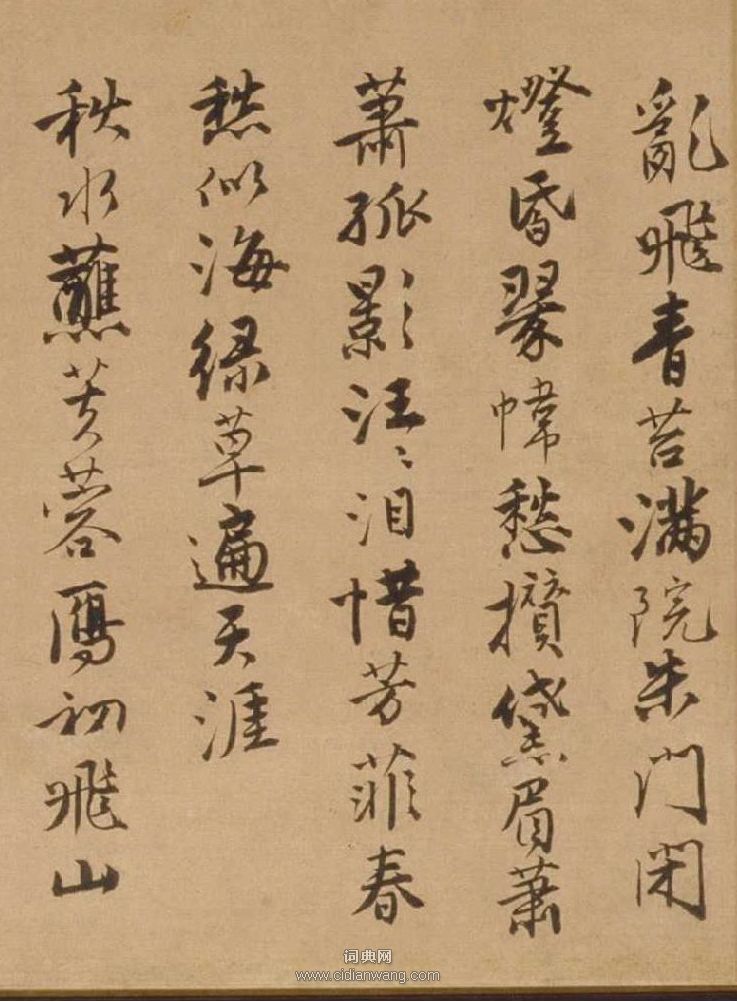 亂飛青苔滿院朱門閉
燈昏翠幃愁攢黛眉蕭
蕭孤影汪〻淚惜芳菲春
愁似海綠草遍天涯
秋水蘸芙蓉鴈初飛山
词典网
www.cidianwang.com